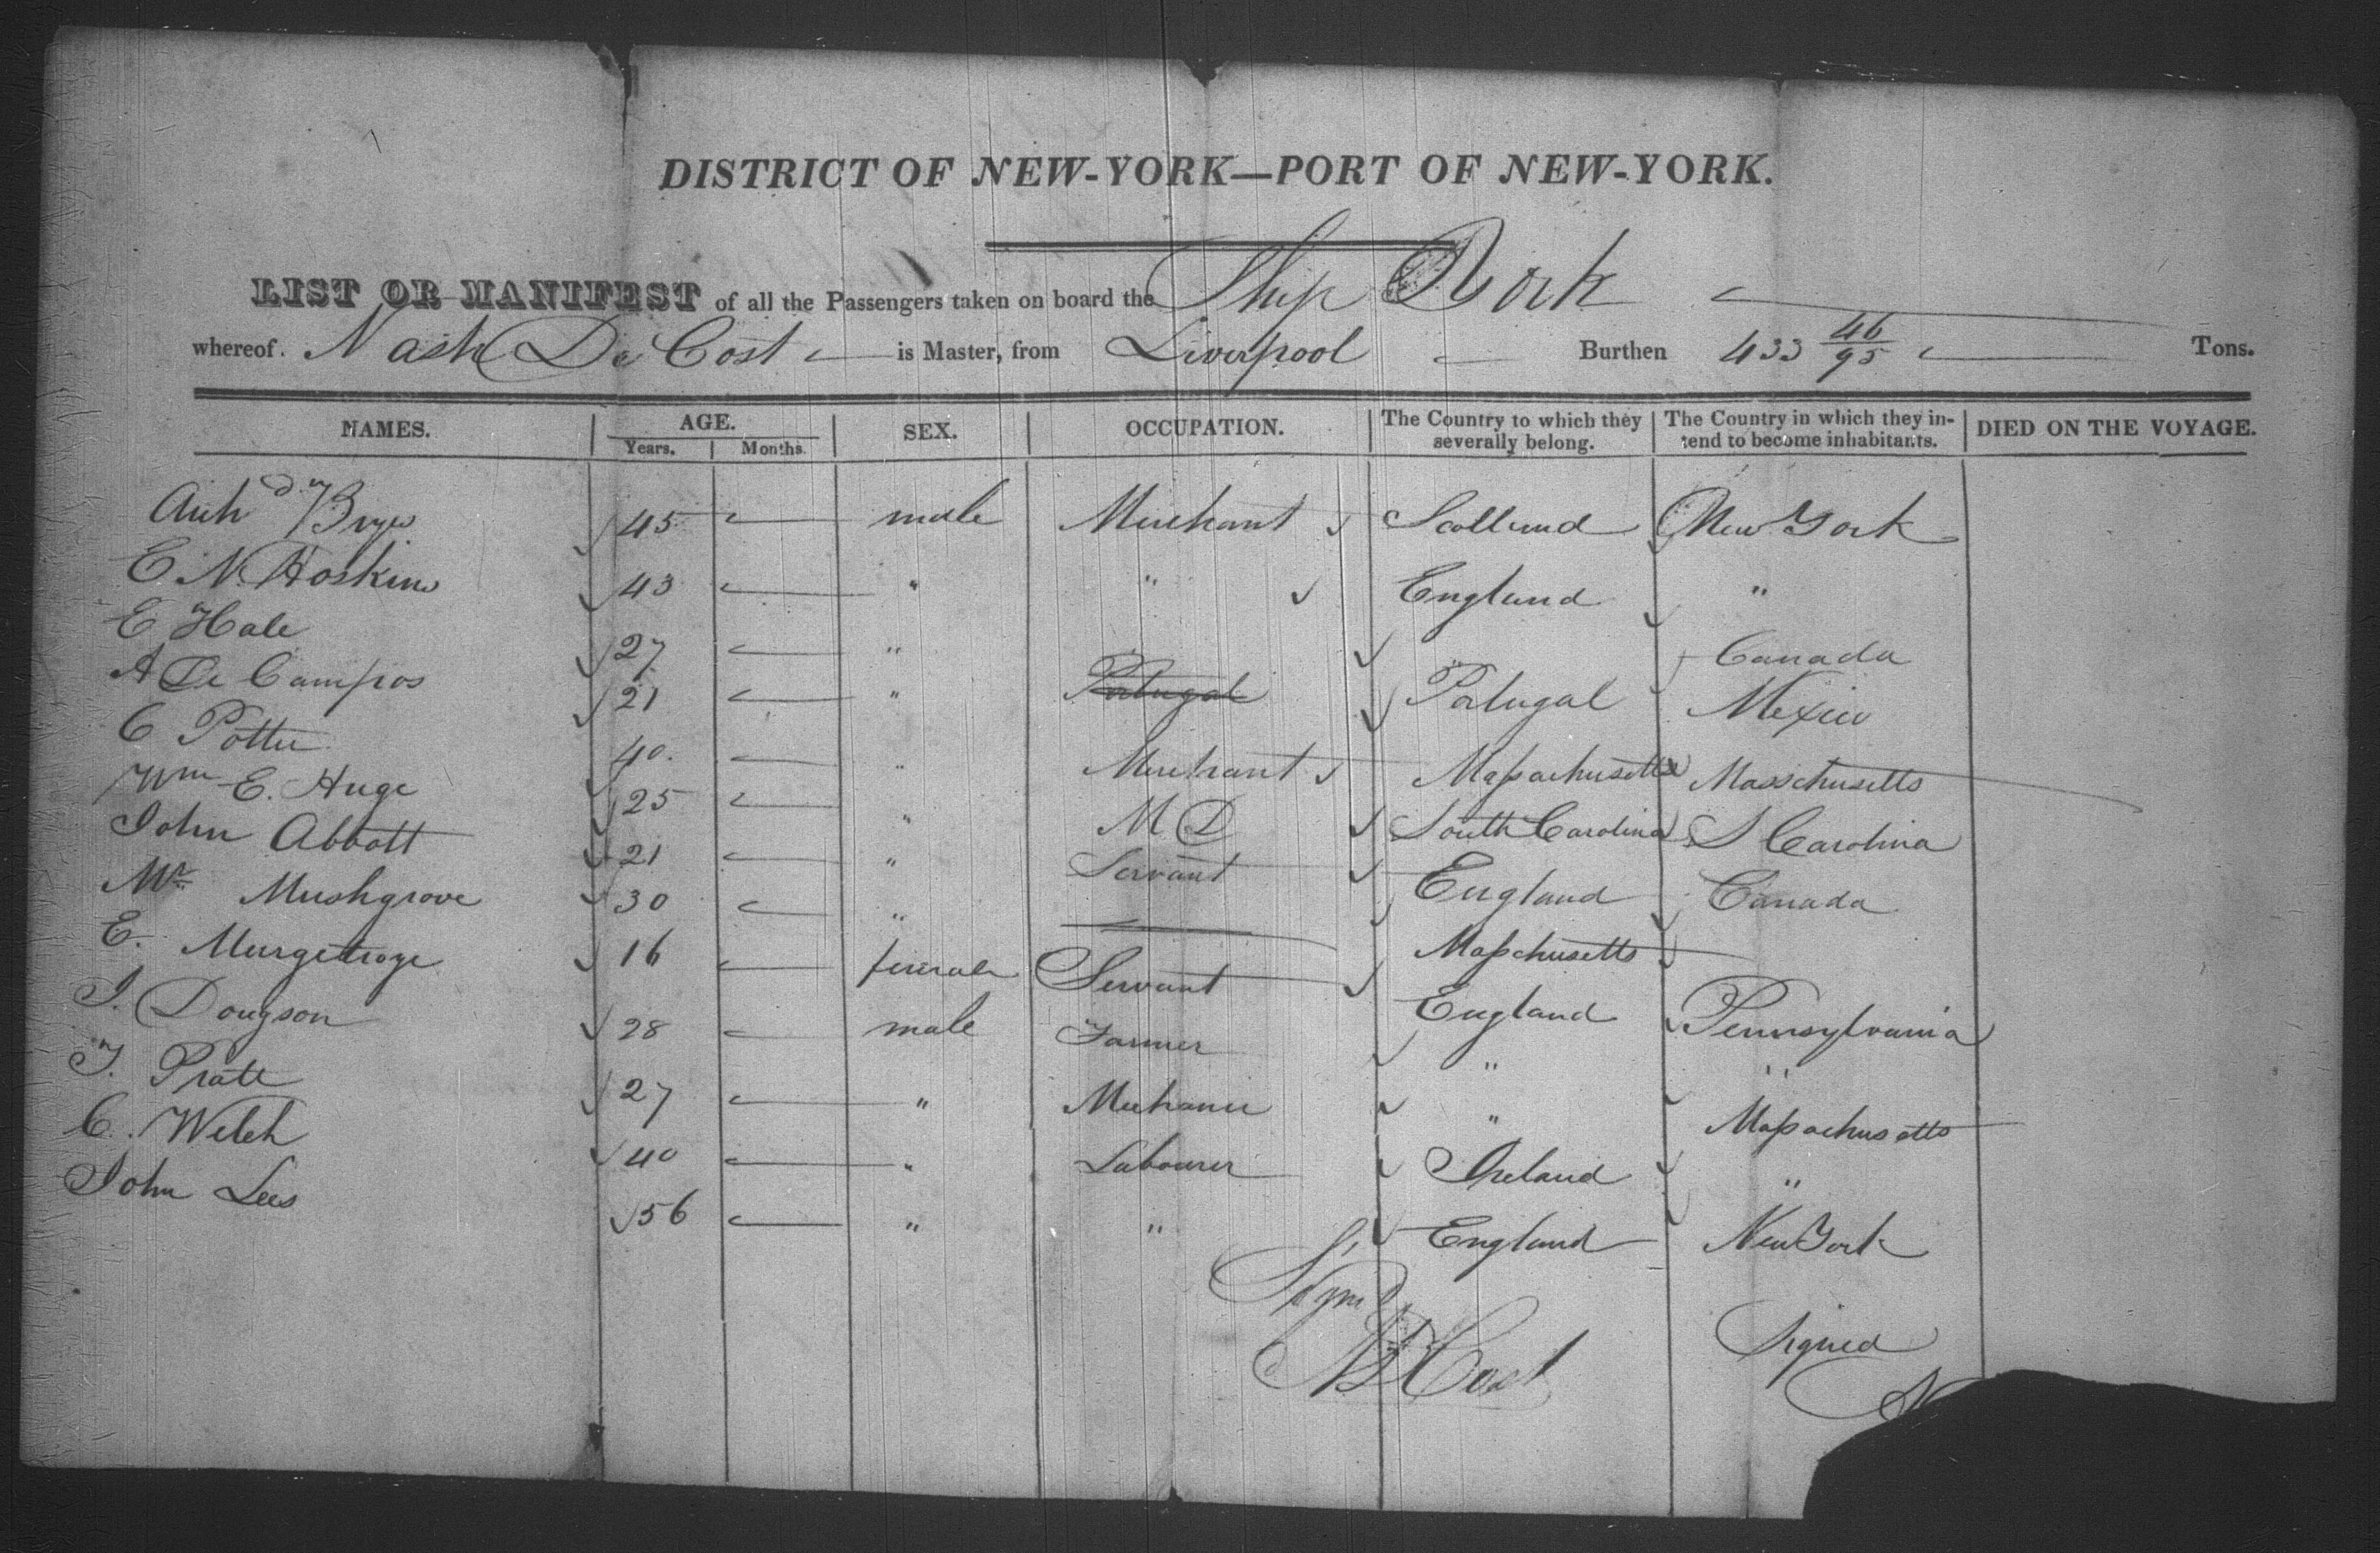 DISTRICT OF NEW-YORK—PORT OF NEW-YORK.
LIST OR MANIFEST of all the Passengers taken on board the Ship York
whereof Nash De Cost is Master, from Liverpool Burthen 433 46/95 Tons.
NAMES. AGE. SEX. OCCUPATION. The Country to which they severally belong. The Country in which they intend to become inhabitants. DIED ON THE VOYAGE.
Years. Months.
Arch'd 45 male Merchant Scotland New York
E. N. Hoskins 43 " " England "
E Hale 27 " " " Canada
A De Campos 21 " Portugal Portugal Mexico
C Potter 40. " Merchant Massachusetts Masschusetts
Wm E. Huge 25 " M. D South Carolina S Carolina
John Abbott 21 " Servant England Canada
Mr. Mushgrove 30 " Masschusetts
E. 16 female Servant England Pennsylvania
J. Dougson 28 male Farmer " "
T. Pratt 27 " Mechanic " Massachusetts
C. Welch 40 " Labourer Ireland "
John Lees 56 " " England New York
Sign'd
N D Cost
Signed
N